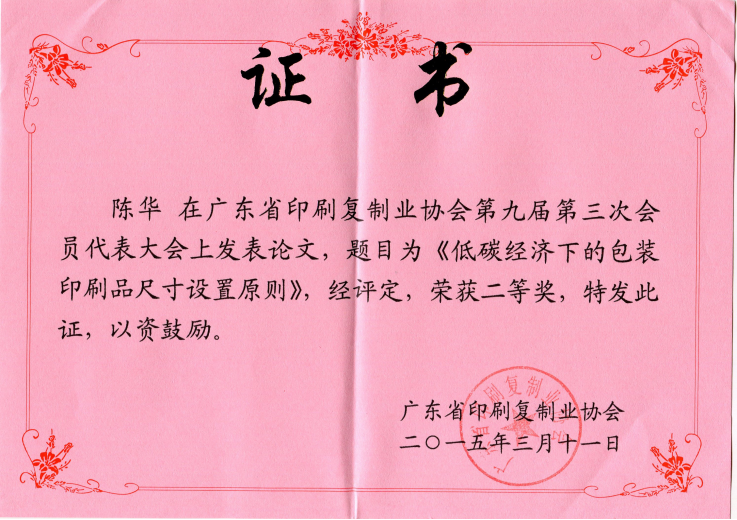 证 书
陈华 在广东省印刷复制业协会第九届第三次会
员代表大会上发表论文，题目为《低碳经济下的包装
印刷品尺寸设置原则》，经评定，荣获二等奖，特发此
证，以资鼓励。
广东省印刷复制业协会
二〇一五年三月十一日
广东省印刷复制业协会